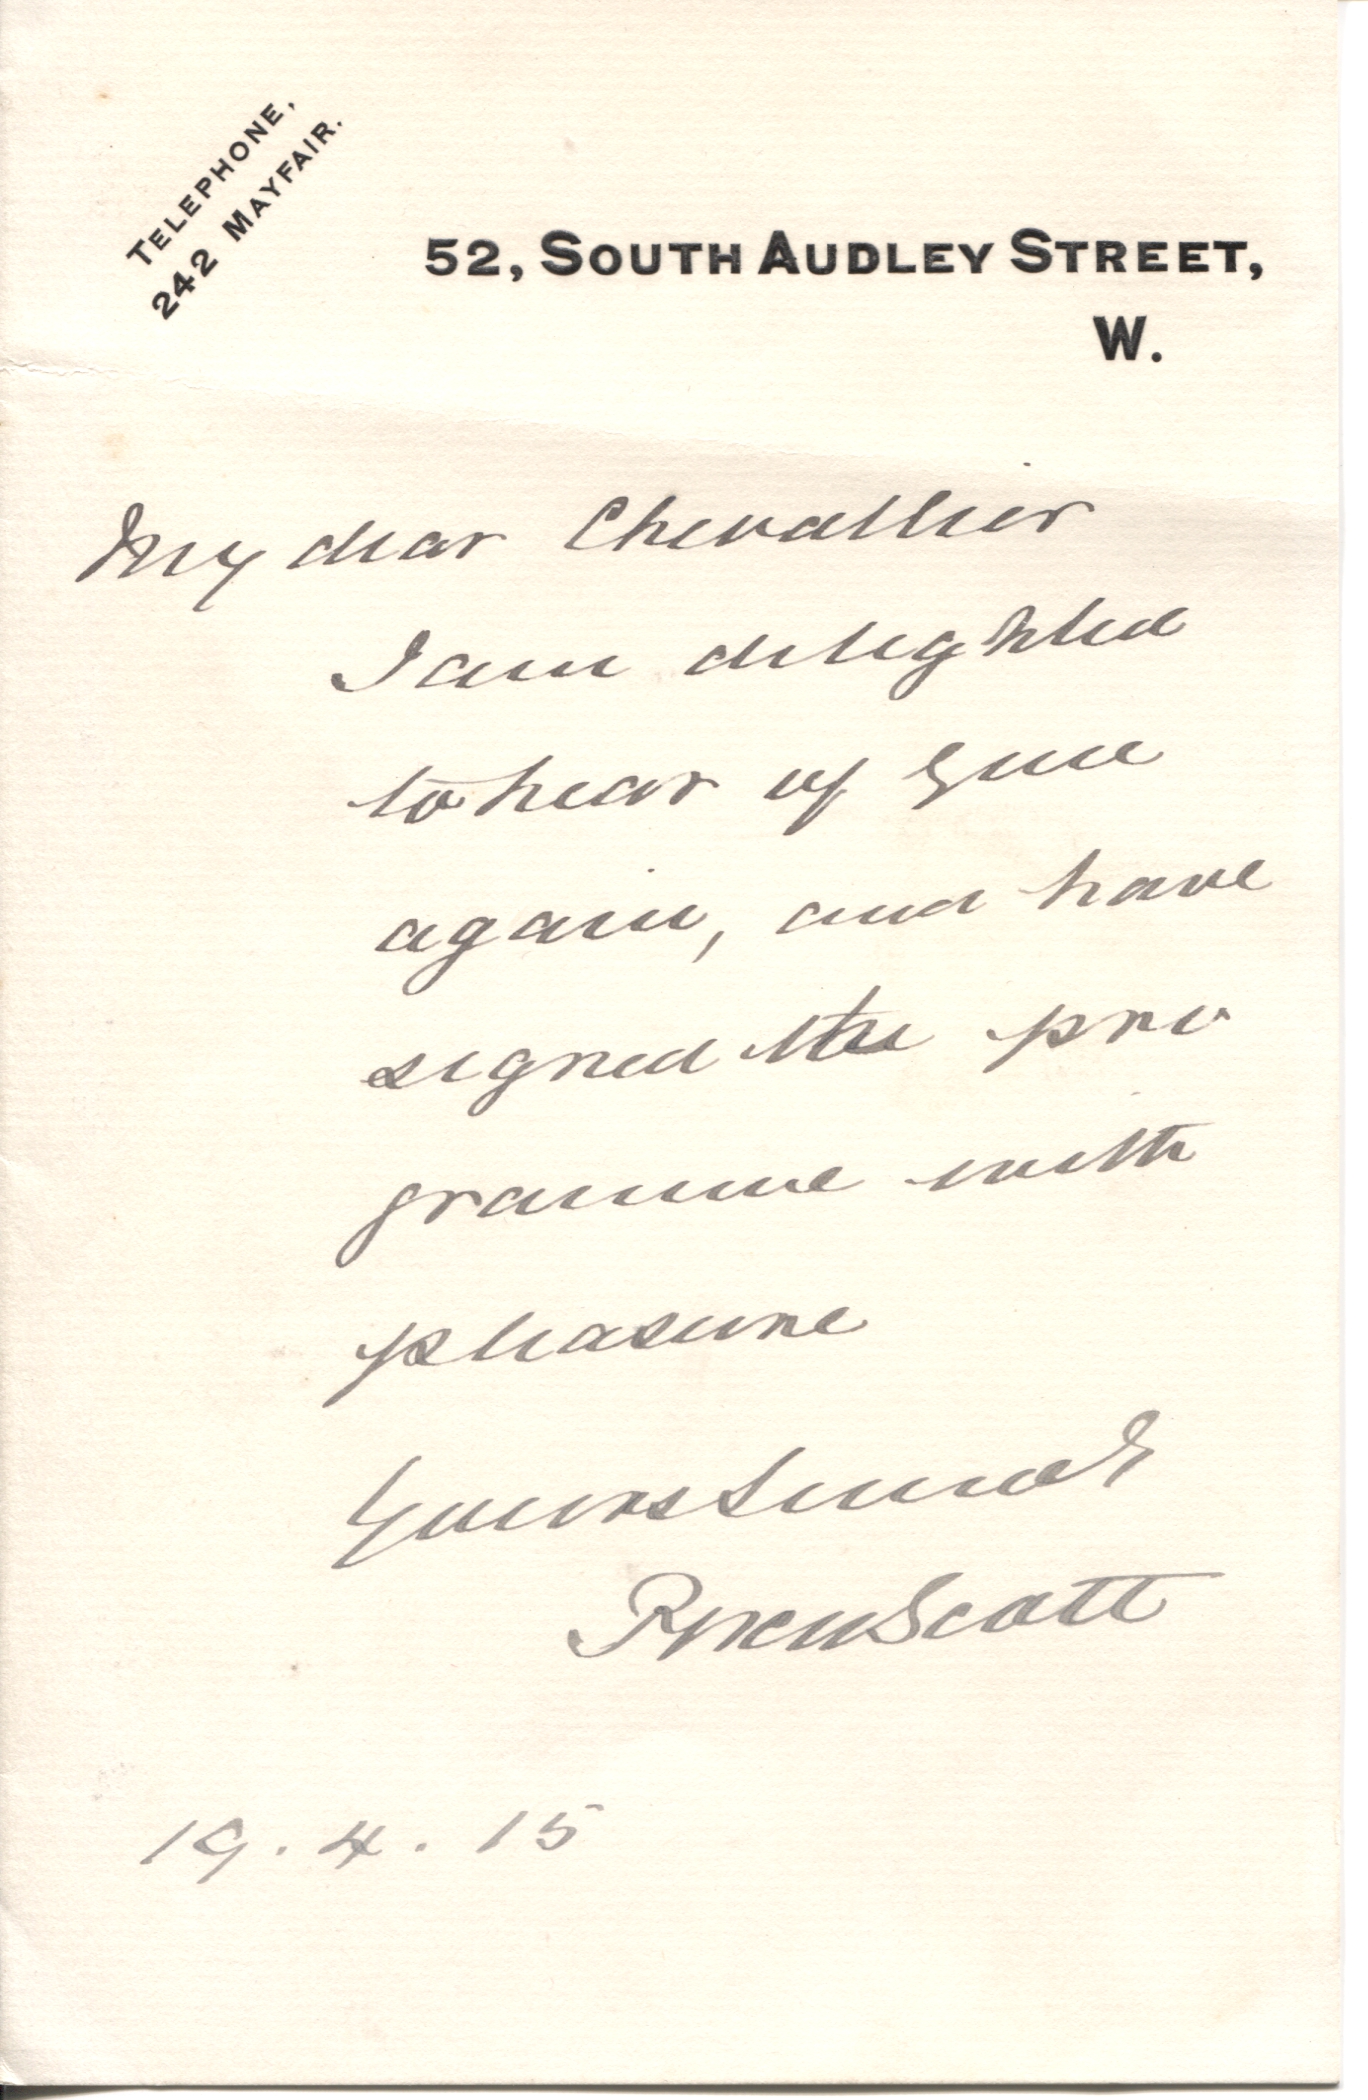 TELEPHONE,
242 MAYFAIR.
52, SOUTH AUDLEY STREET,
W.
My dear Chevallier
I am delighted
to hear of you
again, and have
signed the pro
gramme with
pleasure
Yours
Percy Scott
19.4.15